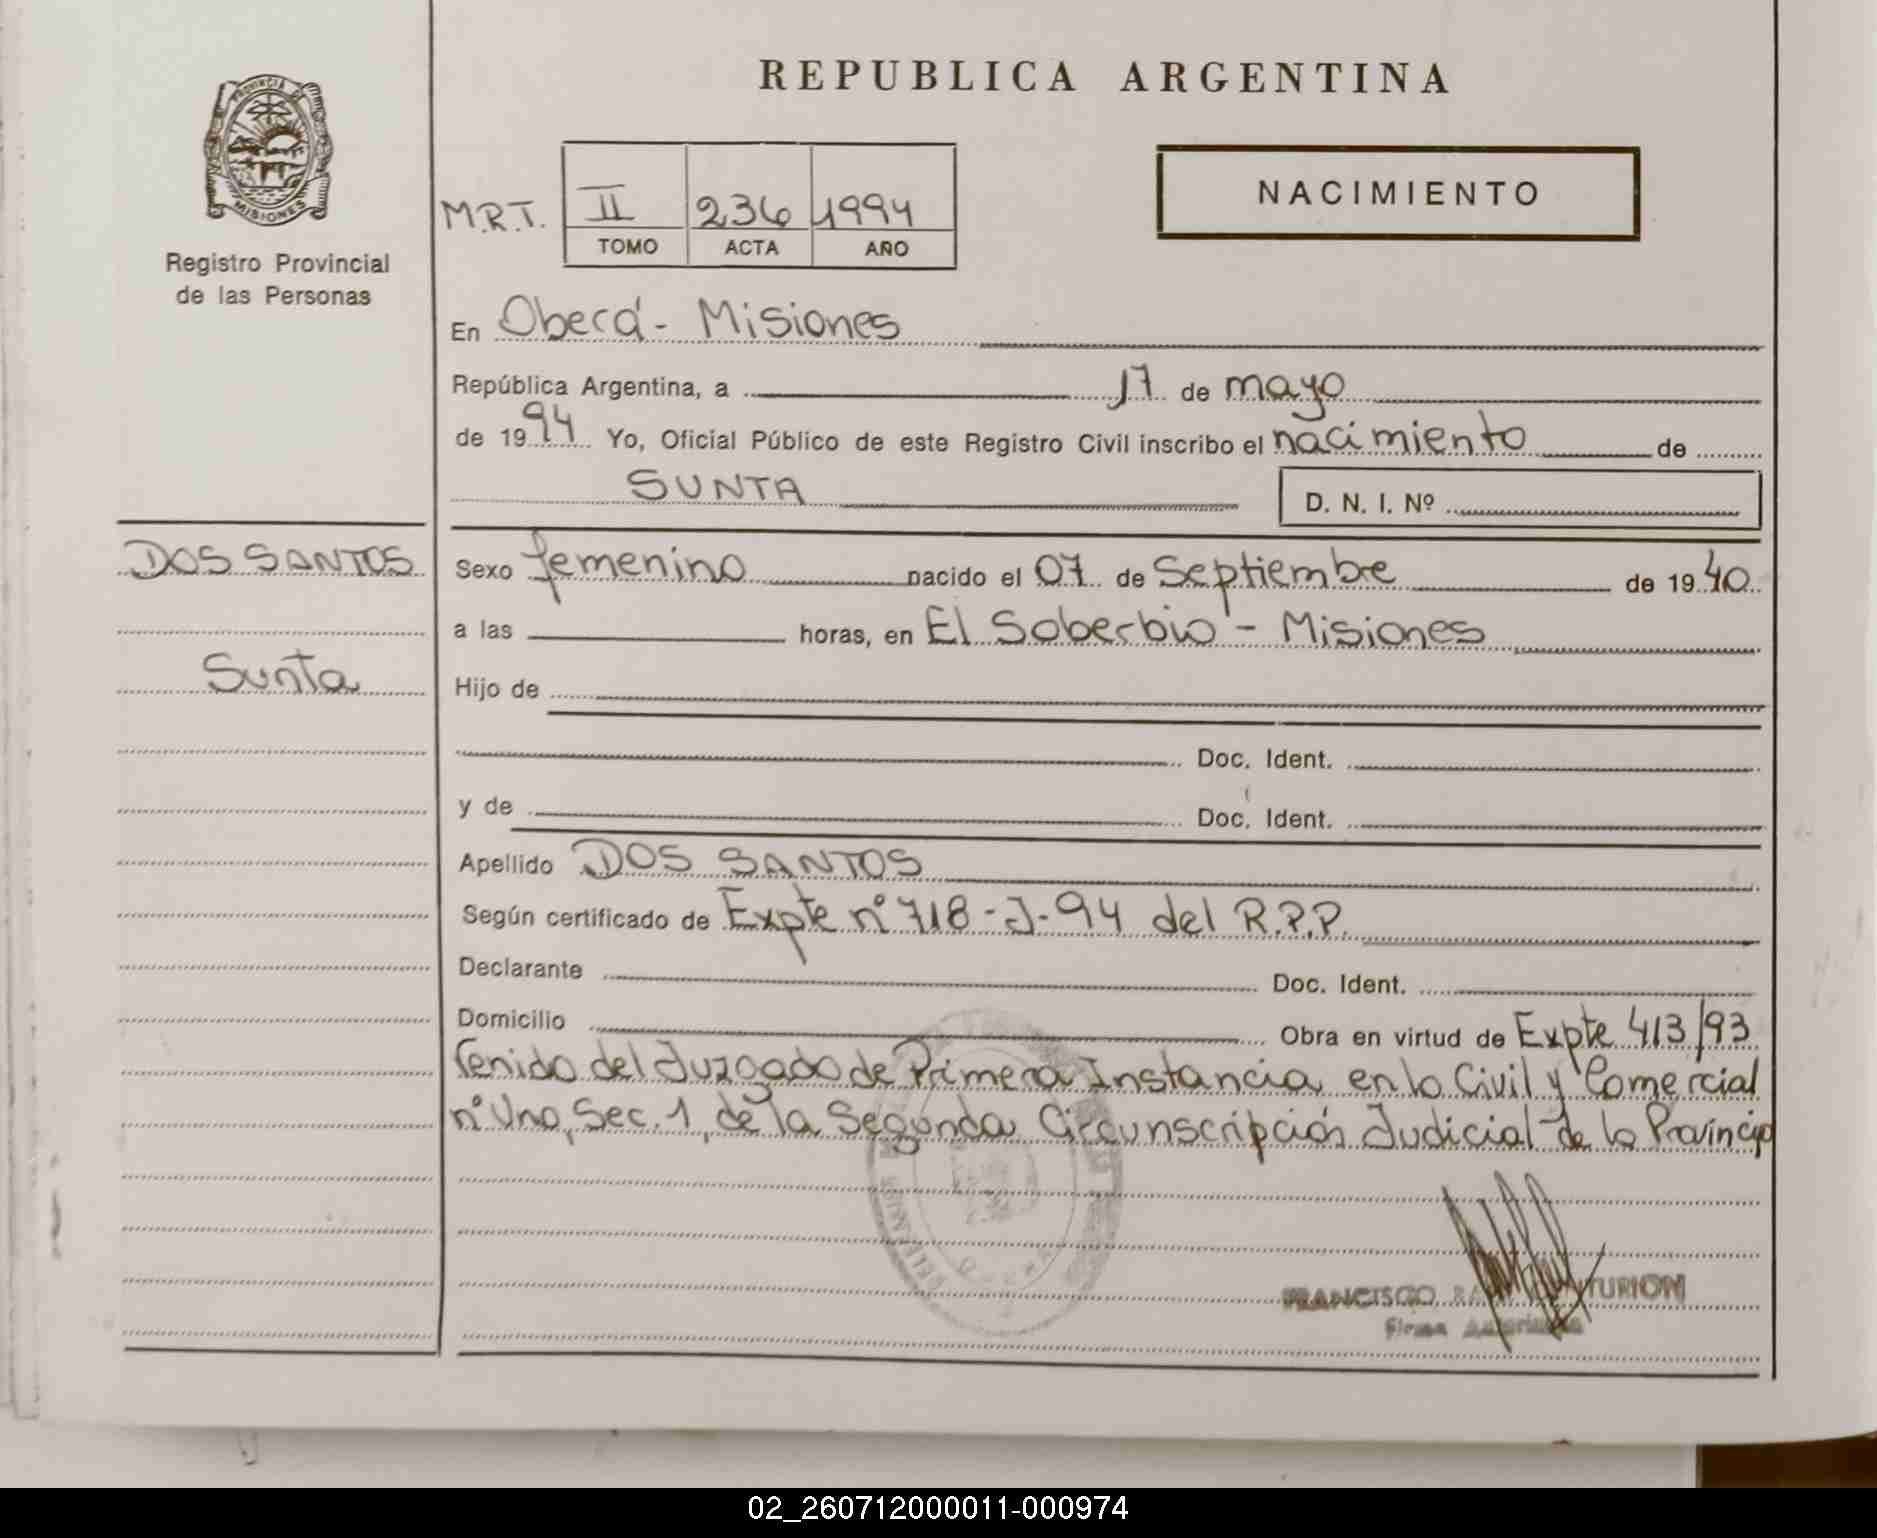 REPUBLICA ARGENTINA
PROVINCIA DE
MISIONES
Registro Provincial
de las Personas
M.R.T.
II
236
1994
TOMO
ACTA
AÑO
NACIMIENTO
En Oberá - Misiones
República Argentina, a 17 de mayo
de 1994 Yo, Oficial Público de este Registro Civil inscribo el nacimiento de
SUNTA
D. N. I. Nº
DOS SANTOS
Sunta
Sexo femenino nacido el 07 de Septiembre de 1940
a las horas, en El Soberbio - Misiones
Hijo de
Doc. Ident.
y de Doc. Ident.
Apellido DOS SANTOS
Según certificado de Expte nº 718-J-94 del R.P.P.
Declarante Doc. Ident.
Domicilio Obra en virtud de Expte 413/93
Venido del Juzgado de Primera Instancia en lo Civil y Comercial
nº Uno, Sec. 1, de la Segunda Circunscripción Judicial de la Provincia
FRANCISCO
Firma
02_260712000011-000974